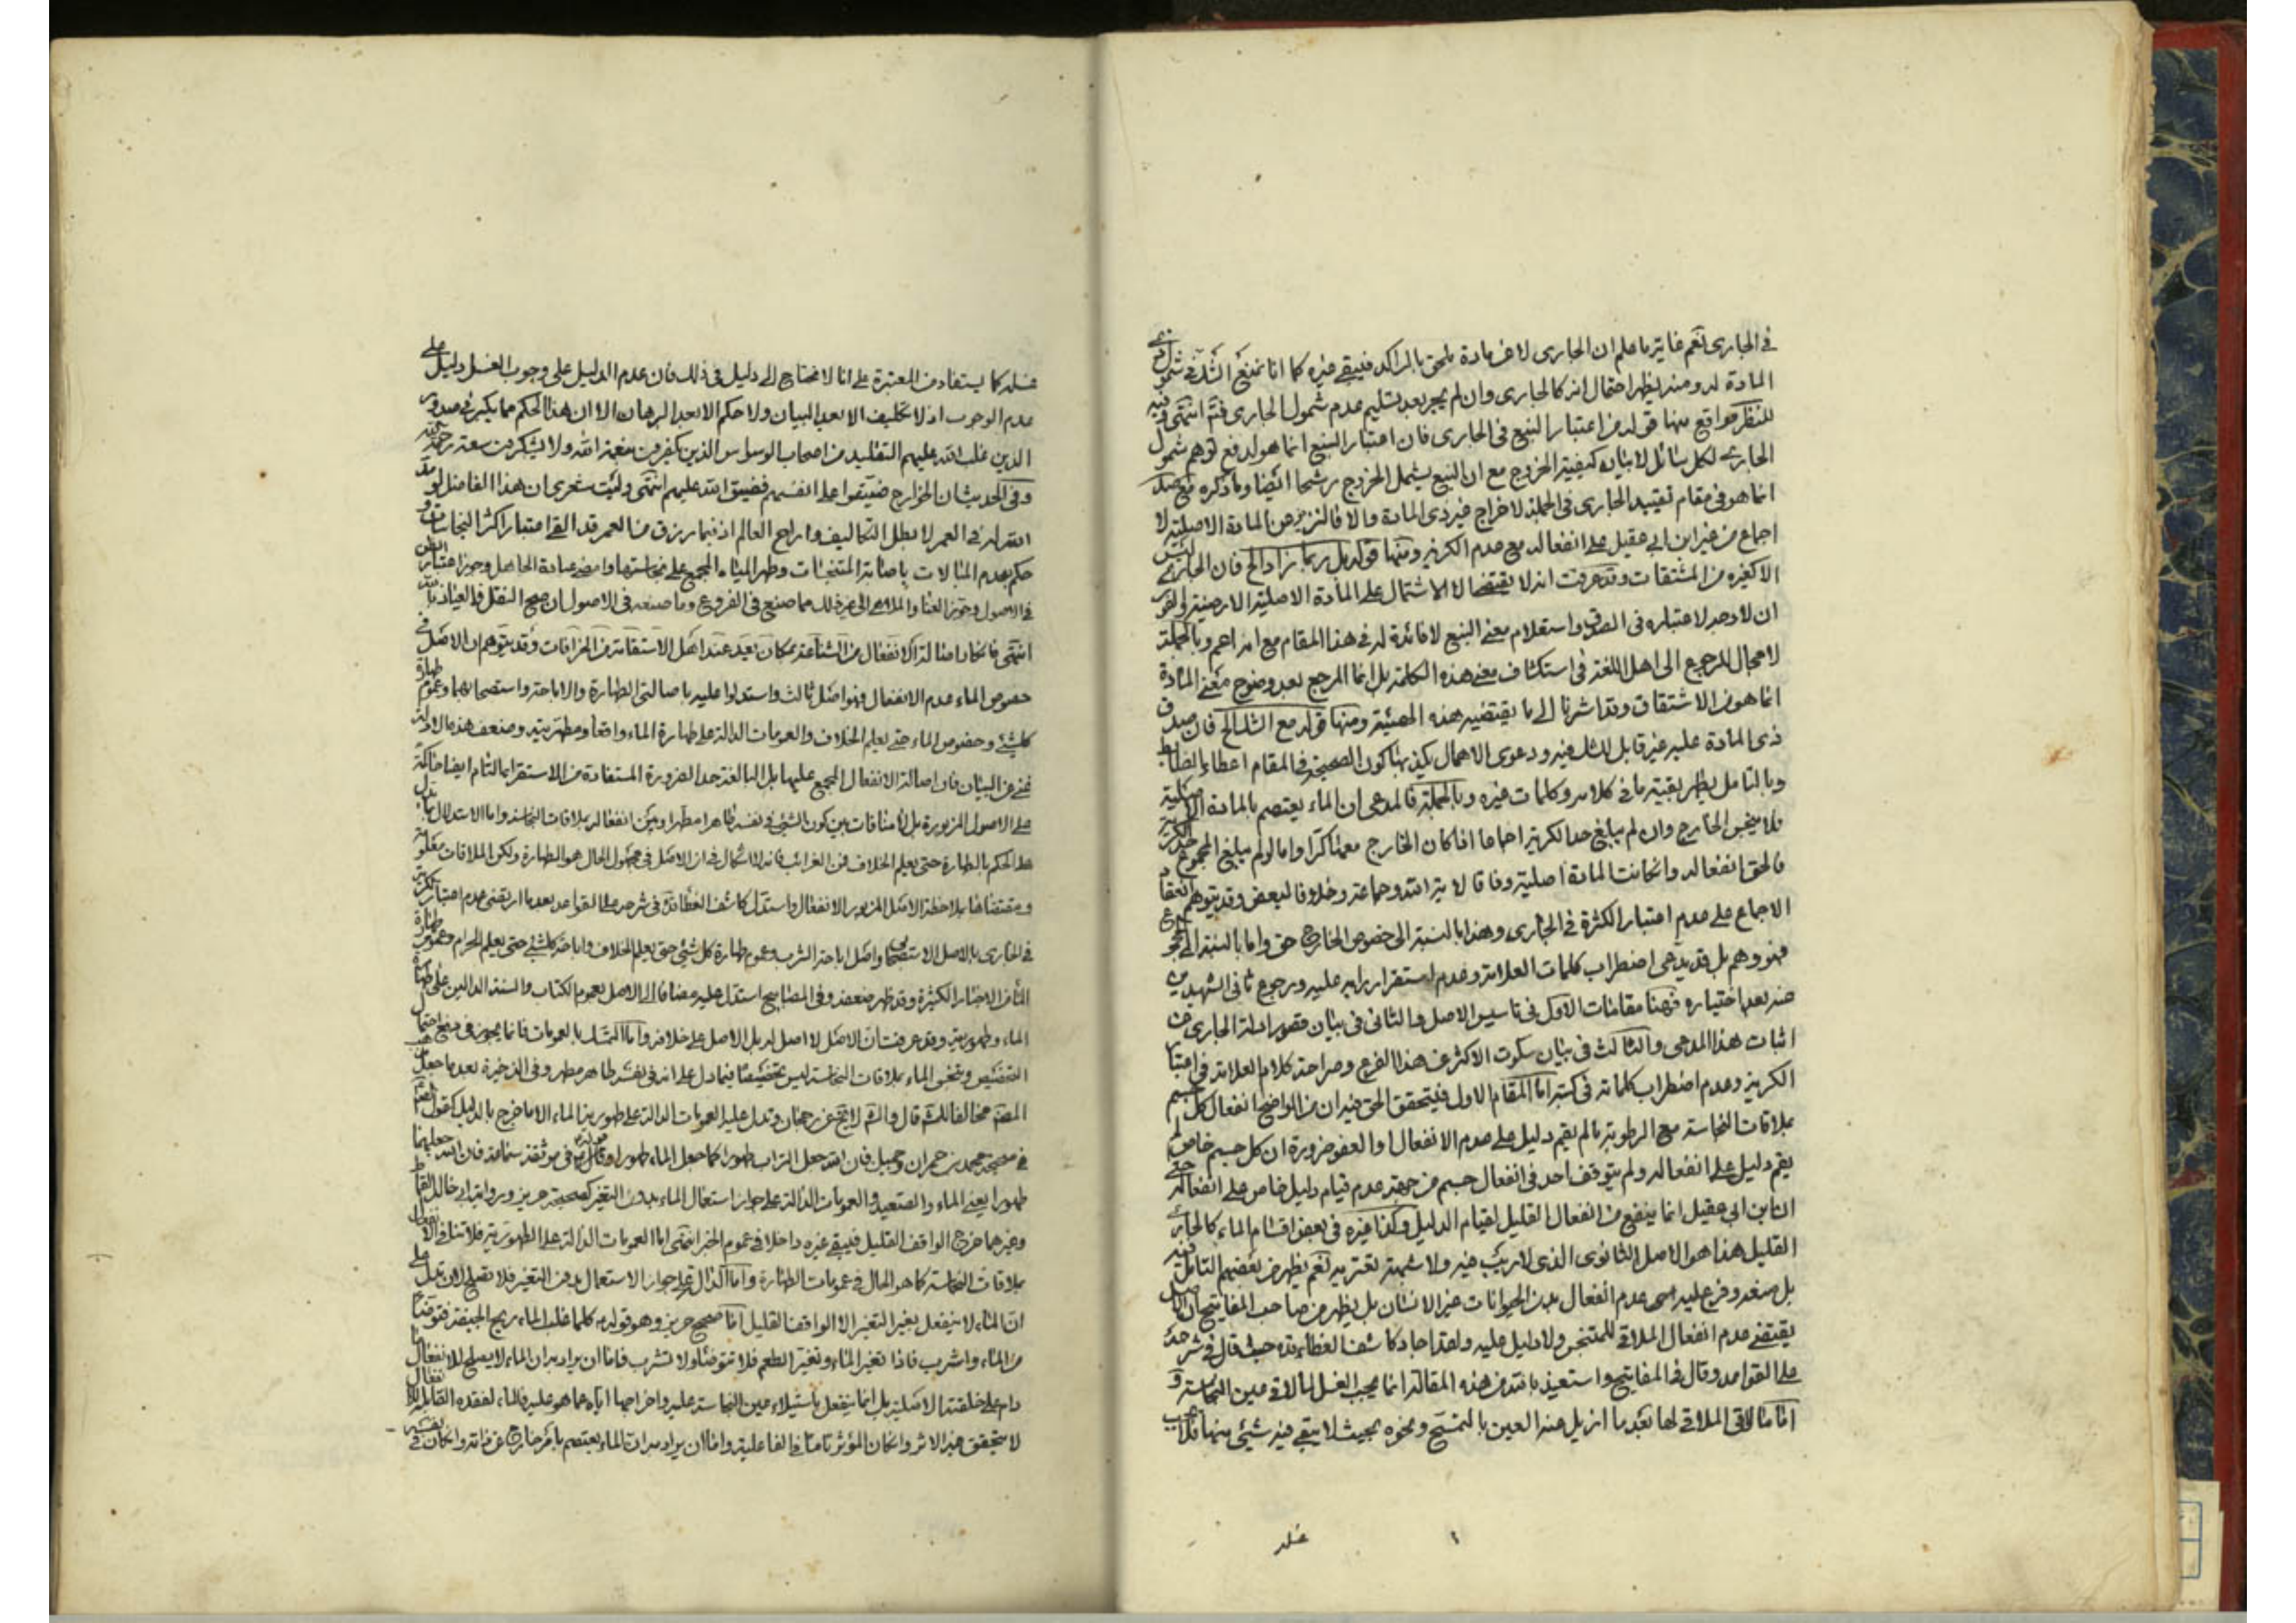 في الجاري نعم غاية ما علم ان الجاري لا عن مادة يلحق بالراكد فيبقى غيره كما انا نمنع الشك في شمول ذي
المادة له ومنه يظهر احتمال انه كالجاري وان لم يجر بعد تسليم عدم شمول الجاري فتم انتهى وفيه
للنظر مواقع منها قوله من اعتبار النبع في الجاري فان اعتبار النبع انما هو لدفع توهم شمول
الجاري لكل سائل لا بيان كيفية الخروج مع ان النبع يشمل الخروج رشحا ايضا وما ذكره
انما هو في مقام تقييد الجاري في الجملة لاخراج غير ذي المادة والا فالنزيز عن المادة الاصلية لا
اجماع من غير ابن ابي عقيل على انفعاله مع عدم الكرية ومنها قوله بل ربما زاد الخ فان الجاري ليس
الا كغيره من المشتقات وقد عرفت انه لا يقتضي الا الاشتمال على المادة الاصلية الارضية
ان لا وجه لاعتباره في الصدق واستعلام معنى النبع لا فائدة له في هذا المقام مع انه اعم وبالجملة
لا مجال للرجوع الى اهل اللغة في استكشاف معنى هذه الكلمة بل انما المرجع بعد وضوح معنى المادة
انما هو في الاشتقاق وقد اشرنا الى ما يقتضيه هذه الهيئة ومنها قوله مع الشك الخ فان صدق
ذي المادة عليه غير قابل للشك فيه ودعوى الاهمال يكذبها كون الصحيحة في المقام اعطاء الضابط
وبالتامل يظهر بقية ما في كلامه وكلمات غيره وبالجملة فالمدعى ان الماء يعتصم بالمادة الاصلية
فلا ينجس الخارج وان لم يبلغ حد الكرية اجماعا اذا كان الخارج معها كرا واما لو لم يبلغ المجموع حد الكرية
فالحق انفعاله وان كانت المادة اصلية وفاقا لاية الله وجماعة وخلافا لبعض وقد يتوهم انعقاد
الاجماع على عدم اعتبار الكثرة في الجاري وهذا بالنسبة الى خصوص الخارج حق واما بالنسبة الى المجموع
فهو وهم بل قد يدعى اضطراب كلمات العلامة وعدم استقرار رايه عليه ورجوع ثاني الشهيدين
عنه بعد اختياره فهنا مقامات الاول في تاسيس الاصل والثاني في بيان قصور ادلة الجاري عن
اثبات هذا المدعى والثالث في بيان سكوت الاكثر عن هذا الفرع وصراحة كلام العلامة في اعتبار
الكرية وعدم اضطراب كلماته في كتبه اما المقام الاول فتحقيق الحق فيه ان من الواضح انفعال كل جسم
بملاقات النجاسة مع الرطوبة ما لم يقم دليل على عدم الانفعال او العفو ضرورة ان كل جسم خاص لم
يقم دليل على انفعاله ولم يتوقف احد في انفعال جسم من جهة عدم قيام دليل خاص على انفعاله حتى
ان ابن ابي عقيل انما يمنع من انفعال القليل لقيام الدليل وكذا غيره في بعض اقسام الماء كالجاري
القليل هذا هو الاصل الثانوي الذي لا ريب فيه ولا شبهة تعتريه نعم يظهر من بعضهم التامل فيه
بل منعه وفرع عليه عدم انفعال بدن الحيوانات غير الانسان بل يظهر من صاحب المفاتيح ان الاصل
يقتضي عدم انفعال الملاقي للمتنجس ولا دليل عليه ولقد اجاد كاشف الغطاء حيث قال في شرحه
على القواعد وقال في المفاتيح واستعيذ بالله من هذه المقالة انما يجب الغسل لما لاقى عين النجاسة و
اما ما لاقى الملاقي لها بعد ما ازيل عنه العين بالتمسح ونحوه بحيث لا يبقى فيه شيئ منها فلا يجب
غسله
غسله كما يستفاد من المعتبرة على انا لا نحتاج الى دليل في ذلك فان عدم الدليل على وجوب الغسل دليل على
عدم الوجوب اذ لا تكليف الا بعد البيان ولا حكم الا بعد البرهان الا ان هذا الحكم مما يكبر في صدور
الذين غلب عليهم التقليد من اصحاب الوسواس الذين يكفرون بنعمة الله ولا يشكرون سعة رحمة الله
وفي الحديث ان الخوارج ضيقوا على انفسهم فضيق الله عليهم انتهى وليت شعري ان هذا الفاضل لو مد
الله له في العمر لابطل التكاليف واراح العالم اذ فيما رزق من العمر قد الغى اعتبار اكثر النجاسات و
حكم بعدم المبالات باصابة المتنجسات وطهر المياه المجمع على نجاستها وامضى عبادة الجاهل وجوز اعتبار الظن
في الاصول وجوز الغنا والملاهي الى غير ذلك مما صنع في الفروع وما صنعه في الاصول ان صح النقل فالعياذ بالله
انتهى فانكار اصالة الانفعال من الشناعة بمكان بعيد عند اهل الاستقامة من الخرافات وقد يتوهم ان الاصل في
خصوص الماء عدم الانفعال فهو اصل ثالث واستدلوا عليه باصالتي الطهارة والاباحة واستصحابهما وعموم طهارة
كل شيئ وخصوص الماء حتى يعلم الخلاف والعمومات الدالة على طهارة الماء واقعا ومطهريته وضعف هذه الادلة
غني عن البيان فان اصالة الانفعال المجمع عليها بل البالغة حد الضرورة المستفادة من الاستقراء التام ايضا حاكمة
على الاصول المزبورة بل لا منافات بين كون الشيئ في نفسه طاهرا مطهرا وبين انفعاله بملاقات النجاسة واما الاستدلال بما دل
على الحكم بالطهارة حتى يعلم الخلاف فمن الغرائب فانه لا اشكال في ان الاصل في مجهول الحال هو الطهارة ولكن الملاقات معلومة
ومقتضاها بملاحظة الاصل المزبور الانفعال واستدل كاشف الغطاء في شرحه على القواعد بعدما ارتضى عدم اعتبار الكرية
في الجاري بالاصل الاستصحابي واصل اباحة الشرب وعموم طهارة كل شيئ حتى يعلم الخلاف واباحة كل شيئ حتى يعلم الحرام وعموم طهارة
الماء الاخبار الكثيرة وقد ظهر ضعفه وفي المصابيح استدل عليه مضافا الى الاصل بعموم الكتاب والسنة الدالين على طهارة
الماء وطهوريته وقد عرفت ان الاصل لا اصل له بل الاصل على خلافه واما التمسك بالعمومات فانما يجوز في دفع احتمال
التخصيص وتنجس الماء بملاقات النجاسة ليس تخصيصا فيما دل على انه في نفسه طاهر مطهر وفي الذخيرة بعد ما جعل
المصنف مخالفا قال والشهرة لا يخلو عن رجحان وتدل عليه العمومات الدالة على طهورية الماء الا ما خرج بالدليل كقول
في صحيحة محمد بن حمران وجميل فان الله جعل التراب طهورا كما جعل الماء طهورا وقوله في موثقة سماعة فان الله جعلهما
طهورا يعني الماء والصعيد والعمومات الدالة على جواز استعمال الماء بدون التغير كصحيحة حريز ورواية ابي خالد القماط
وغيرهما خرج الواقف القليل فيبقى غيره داخلا في عموم الخبر انتهى اما العمومات الدالة على الطهورية فلا تنافي الانفعال
بملاقات النجاسة كما هو الحال في عمومات الطهارة واما الدال على جواز الاستعمال بدون التغير فلا يصلح لان يدل على
ان الماء لا ينفعل بغير التغير الا الواقف القليل اما صحيح حريز وهو قوله كلما غلب الماء ريح الجيفة فتوضأ
من الماء واشرب فاذا تغير الماء وتغير الطعم فلا تتوضأ ولا تشرب فاما ان يراد به ان الماء لا يصلح للانفعال ما
دام على خلقته الاصلية بل انما ينفعل باستيلاء عين النجاسة عليه واخراجها اياه عما هو عليه فالماء لفقده القابلية للانفعال
لا يتحقق فيه الاثر وان كان المؤثر تاما في الفاعلية واما ان يراد به ان الماء يعتصم بامر خارج عن ذاته وان كان في نفسه